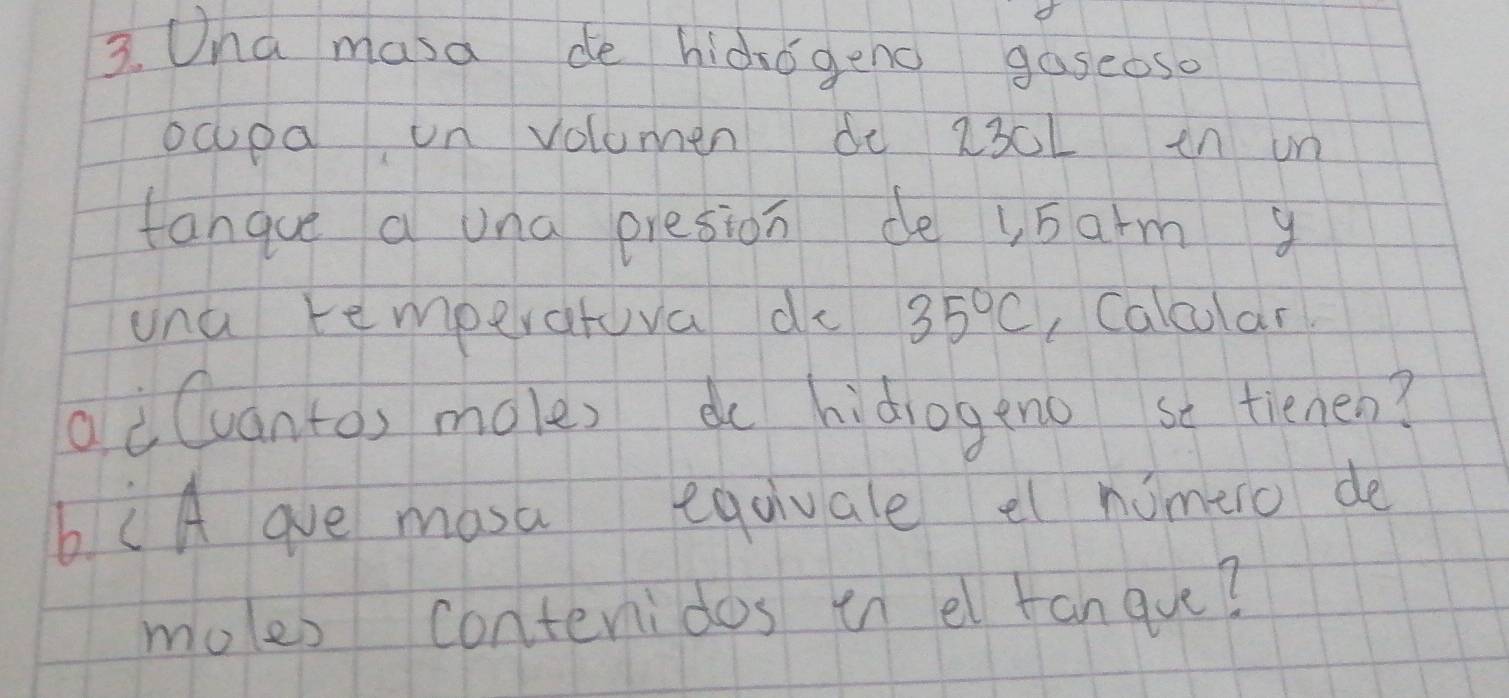 3. Una masa de hidrógeno gaseoso
ocupa un volumen de 230L en un
tanque a una presión de 1,5 atm y
una temperatura de 35°C, Calcular.
a. ¿Cuantos moles de hidrogeno se tienen?
b. ¿A que masa equivale el número de
moles contenidos en el tanque?